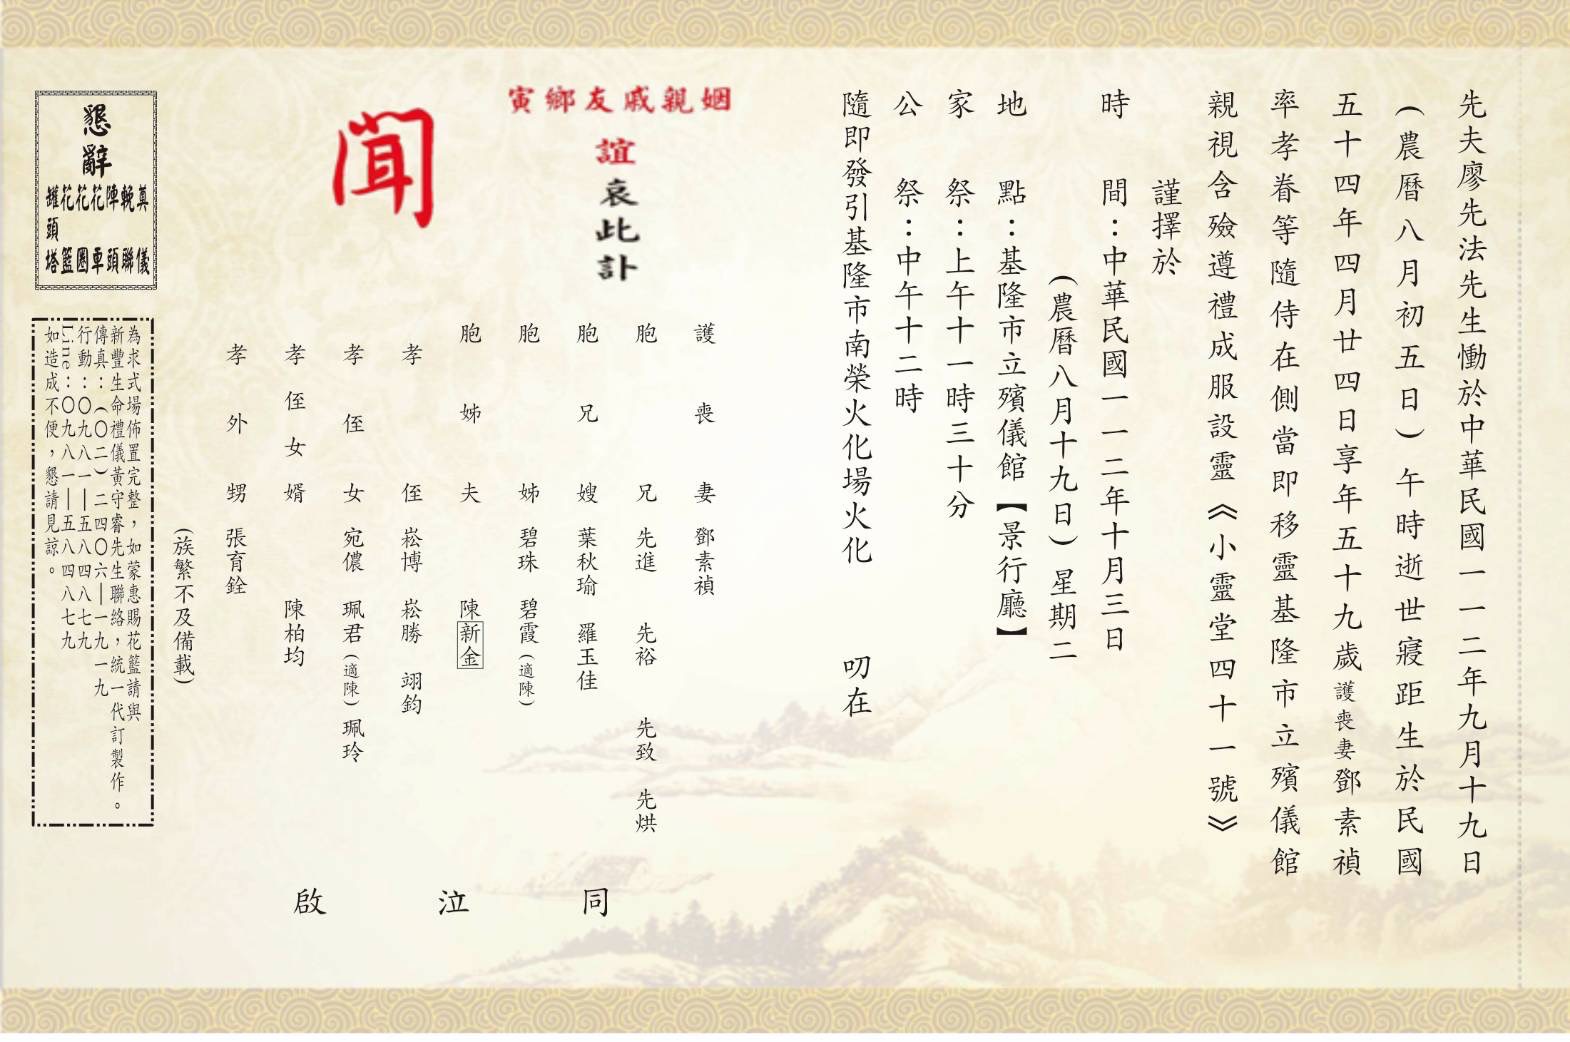 先夫廖先法先生慟於中華民國一一二年九月十九日
(農曆八月初五日)午時逝世寢距生於民國
五十四年四月廿四日享年五十九歲護喪妻鄧素禎
率孝眷等隨侍在側當即移靈基隆市立殯儀館
親視含殮遵禮成服設靈《小靈堂四十一號》
謹擇於
時間:中華民國一一二年十月三日
(農曆八月十九日)星期二
地點:基隆市立殯儀館【景行廳】
家祭:上午十一時三十分
公祭:中午十二時
隨即發引基隆市南榮火化場火化 叨在
姻親戚友鄉寅
誼哀此訃
聞
護喪妻 鄧素禎
胞兄 先進 先裕 先致 先烘
胞兄嫂 葉秋瑜 羅玉佳
胞姊 碧珠 碧霞(適陳)
胞姊夫 陳新金
孝侄 崧博 崧勝 翊鈞
孝侄女 宛儂 珮君(適陳) 珮玲
孝侄女婿 陳柏均
孝外甥 張育銓
(族繁不及備載)
同泣啟
懇辭
奠儀
輓聯
陣頭
花車
花圈
花籃
罐頭塔
為求式場佈置完整,如蒙惠賜花籃請與
新豐生命禮儀黃守睿先生聯絡,統一代訂製作。
傳真:(〇二)二四〇六—一九一九
行動:〇九八一—五八四八七九
Line:〇九八一—五八四八七九
如造成不便,懇請見諒。